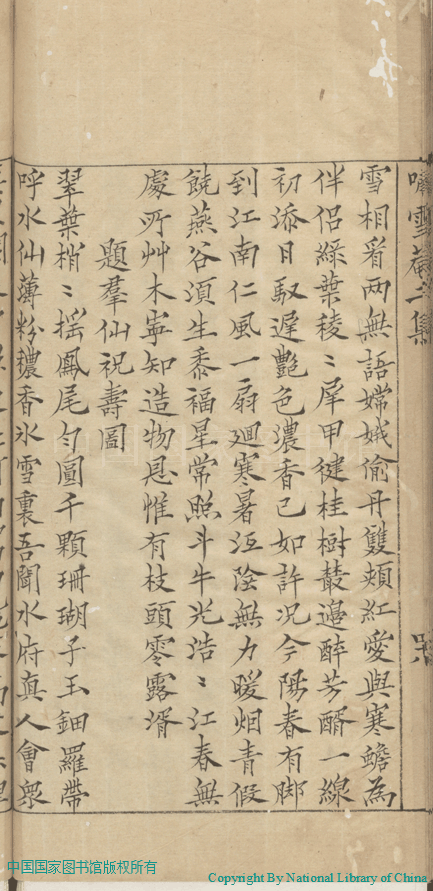 嘯雪菴二集
雪相看两無語嫦娥偷丹雙頰紅愛與寒蟾為
伴侣綠葉稜〻犀甲健桂樹叢邉醉芳醑一線
初添日馭遲艷色濃香已如許况今陽春有脚
到江南仁風一扇廻寒暑沍陰無力暖烟青假
饒燕谷須生黍福星常照斗牛光浩〻江春無
處所艸木寧知造物恩惟有枝頭零露湑
題羣仙祝壽圖
翠葉梢〻摇鳳尾匀圓千顆珊瑚子玉鈿羅帶
呼水仙薄粉襛香氷雪裏吾聞水府真人會衆
中国国家图书馆版权所有
Copyright By National Library of China